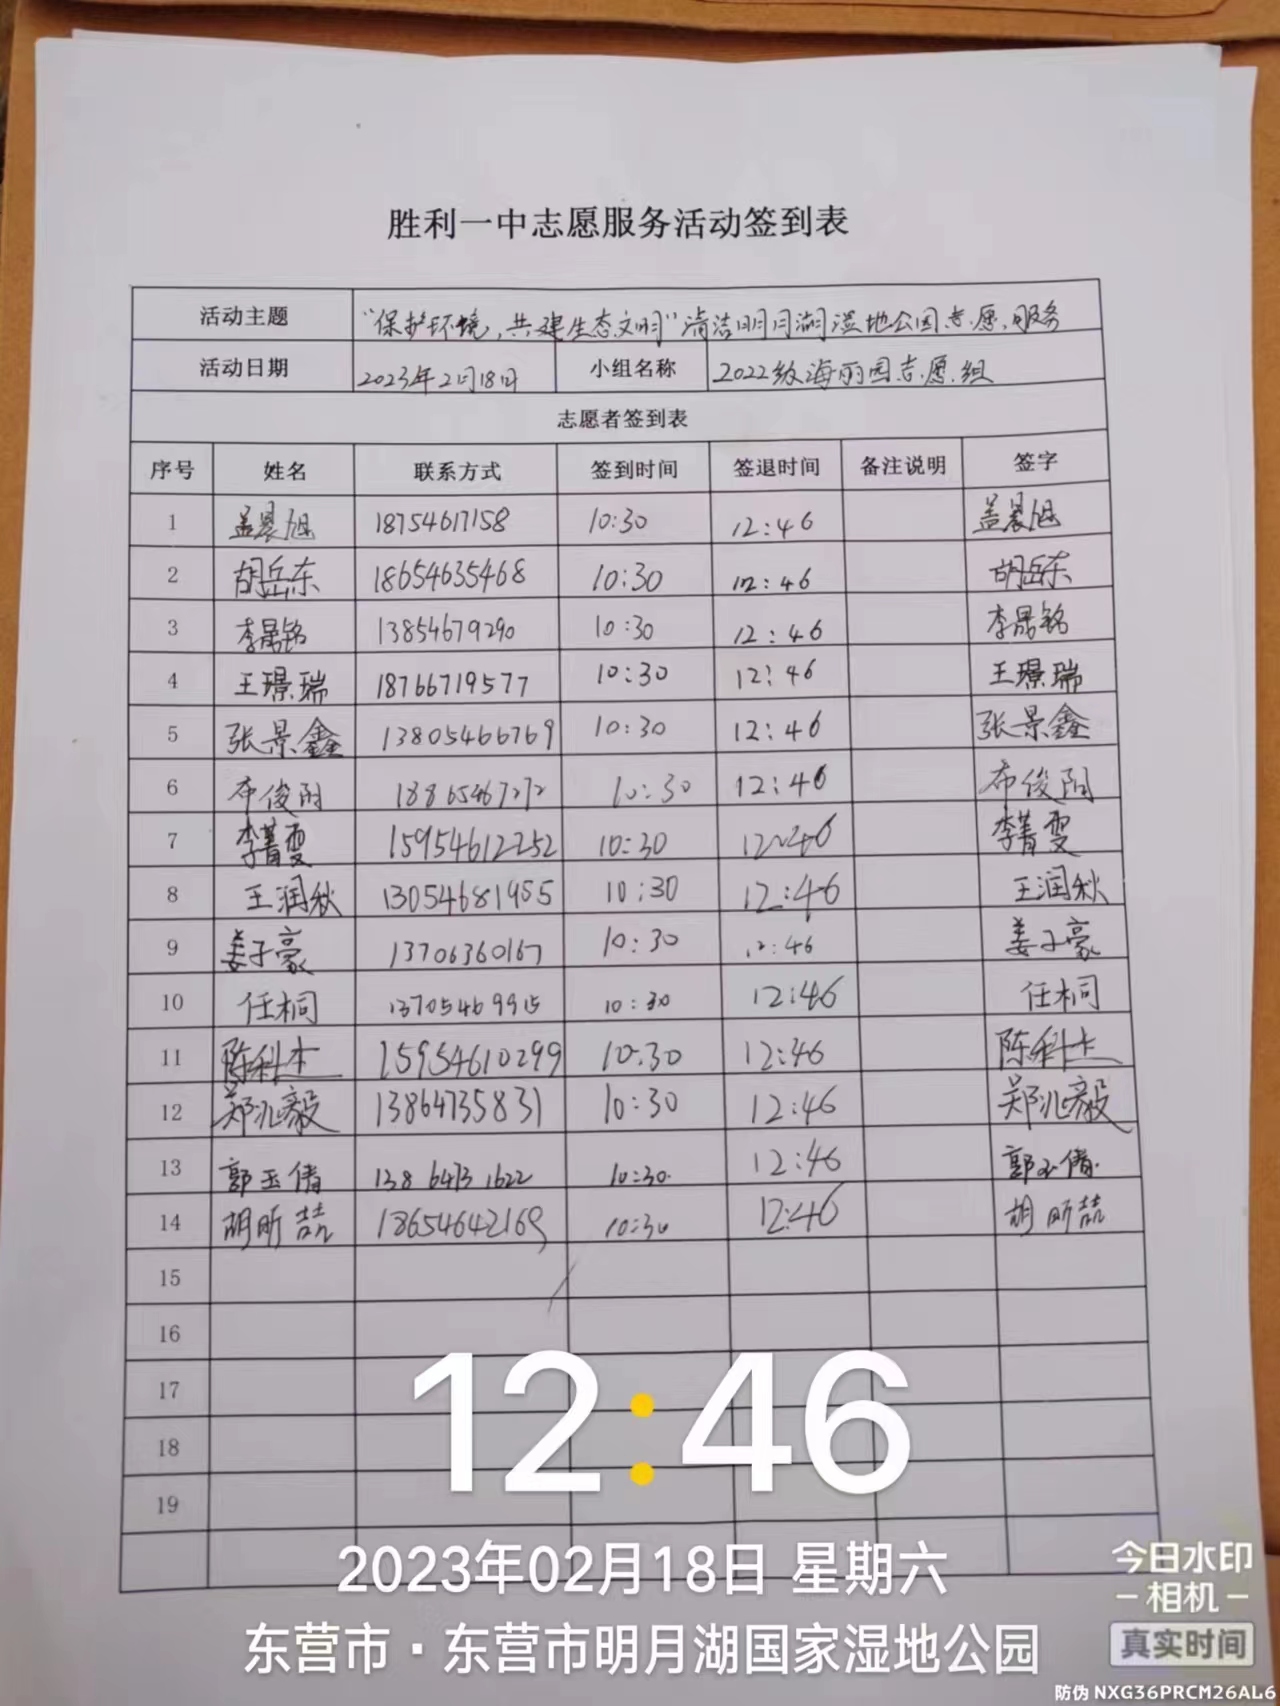 胜利一中志愿服务活动签到表
活动主题 “保护环境，共建生态文明”清洁明月湖湿地公园志愿服务
活动日期 2023年2月18日 小组名称 2022级海丽园志愿组
志愿者签到表
序号 姓名 联系方式 签到时间 签退时间 备注说明 签字
1 盖晨旭 18754617158 10:30 12:46 盖晨旭
2 胡岳东 18654635468 10:30 12:46 胡岳东
3 李晟铭 13854679290 10:30 12:46 李晟铭
4 王璟瑞 18766719577 10:30 12:46 王璟瑞
5 张景鑫 13805466769 10:30 12:46 张景鑫
6 布俊 18865467272 10:30 12:46 布俊
7 李菁雯 15954612252 10:30 12:46 李菁雯
8 王润秋 13054681955 10:30 12:46 王润秋
9 姜子豪 13706360167 10:30 12:46 姜子豪
10 任桐 13705469915 10:30 12:46 任桐
11 陈科杰 15954610299 10:30 12:46 陈科杰
12 郑兆毅 13864735831 10:30 12:46 郑兆毅
13 郭玉倩 13864731622 10:30 12:46 郭玉倩
14 胡昕喆 18654642169 10:30 12:46 胡昕喆
15
16
17
18
19
12:46
2023年02月18日 星期六
东营市·东营市明月湖国家湿地公园
今日水印
相机
真实时间
防伪 NXG36PRCM26AL6